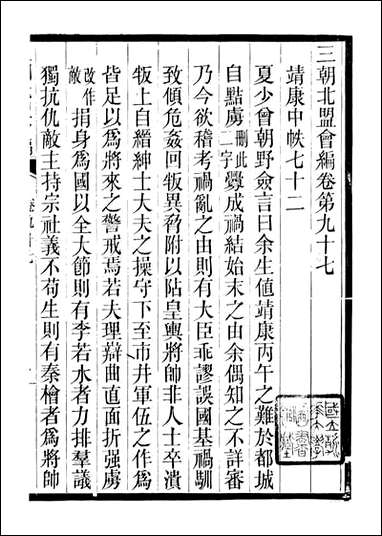 三朝北盟會編卷第九十七
靖康中帙七十二
夏少曾朝野僉言曰余生值靖康丙午之難於都城
自點虜刪此二字釁成禍結始末之由余偶知之不詳審
乃今欲稽考禍亂之由則有大臣乖謬誤國基禍馴
致傾危姦回叛異脅附以阽皇輿將帥非人士卒潰
叛上自縉紳士大夫之操守下至市井軍伍之作為
皆足以為將來之警戒焉若夫理辯曲直面折强虜
改作敵捐身為國以全大節則有李若水者力排羣議
獨抗仇敵主持宗社義不苟生則有秦檜者為將帥